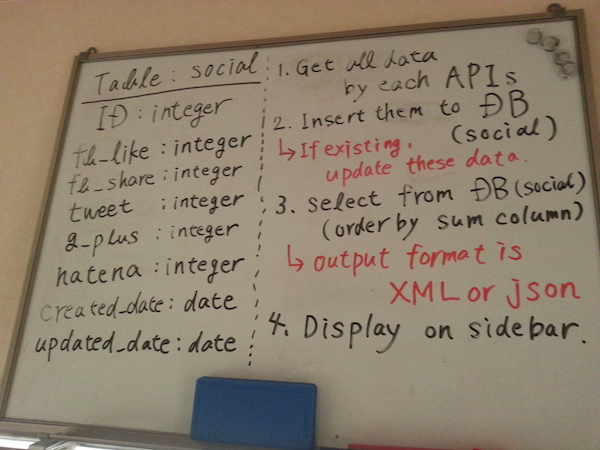 Table : social
ID : integer
fb_like : integer
fb_share : integer
tweet : integer
g_plus : integer
hatena : integer
created_date : date
updated_date : date
1. Get all data
by each APIs
2. Insert them to DB
(social)
↳ If existing,
update these data.
3. select from DB (social)
(order by sum column)
↳ output format is
XML or json
4. Display on sidebar.